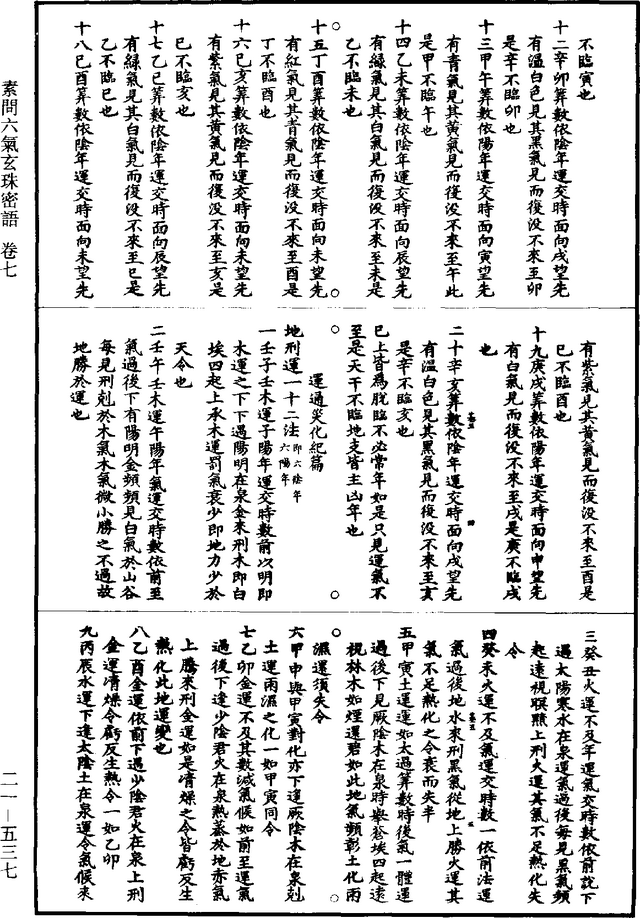 素問六氣玄珠密語　卷七
不臨寅也
十二辛卯算數依陰年運交時面向戌望先
有溫白色見其黑氣見而復没不來至卯
是辛不臨卯也
十三甲午算數依陽年運交時面向寅望先
有青氣見其黃氣見而復没不來至午此
是甲不臨午也
十四乙未算數依陰年運交時面向辰望先
有綠氣見其白氣見而復没不來至未是
乙不臨未也
十五丁酉算數依陰年運交時面向未望先
有紅氣見其青氣見而復没不來至酉是
丁不臨酉也
十六己亥算數依陰年運交時面向未望先
有紫氣見其黃氣見而復没不來至亥是
已不臨亥也
十七乙巳算數依陰年運交時面向辰望先
有綠氣見其白氣見而復没不來至巳是
乙不臨巳也
十八己酉算數依陰年運交時面向未望先
有紫氣見其黃氣見而復没不來至酉是
已不臨酉也
十九庚戌算數依陽年運交時面向申望先
有白氣見而復没不來至戌是庚不臨戌
也
二十辛亥算數依陰年運交時面向戌望先
有溫白色見其黑氣見而復没不來至亥
是辛不臨亥也
已上皆爲脫臨不必常年如是只見運氣不
至是天干不臨地支皆主凶年也
運過災化紀篇
地刑運一十二法即六陰年六陽年
一壬子壬木運子陽年運交時數前次明即
木運之下下遇陽明在泉金來刑木即白
埃四起上承木運罰氣衰少即地力少於
天令也
二壬午壬木運午陽年氣運交時數依前至
氣過後下有陽明金頻頻見白氣於山谷
每見刑剋於木氣木氣微小勝之不過故
地勝於運也
三癸丑火運不及年運氣交時數依前說下
遇太陽寒水在泉運氣過後每見黑氣頻
起遠視䁬黯上刑火運其氣不足熱化失
令
四癸未火運不及氣運交時數一依前法運
氣過後地水來刑黑氣從地上勝火運其
氣不足熱化之令衰而失半
五甲寅土運運如太過算數時後氣一體運
過後下見厥陰木在泉時舉蒼埃四起遠
視林木如煙還碧如此地氣頻彰土化雨
濕運須失令
六甲申與甲寅對化亦下逢厥陰木在泉剋
土運雨濕之化一如甲寅同令
七乙卯金運不及其數減氣候如前至運氣
過後下逢少陰君火在泉熱蒸於地赤氣
上騰來刑金運如是清燥之令皆虧反生
熱化此地運變也
八乙酉金運依前下遇少陰君火在泉上刑
金運清燥令虧反生熱令一如乙卯
九丙辰水運下逢太陰土在泉運令氣候來
二一－五三七